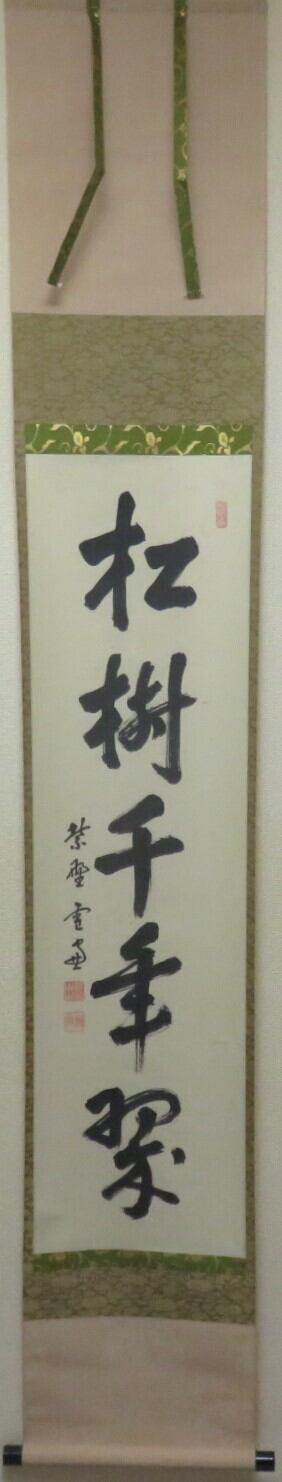 松樹千年翠
紫野